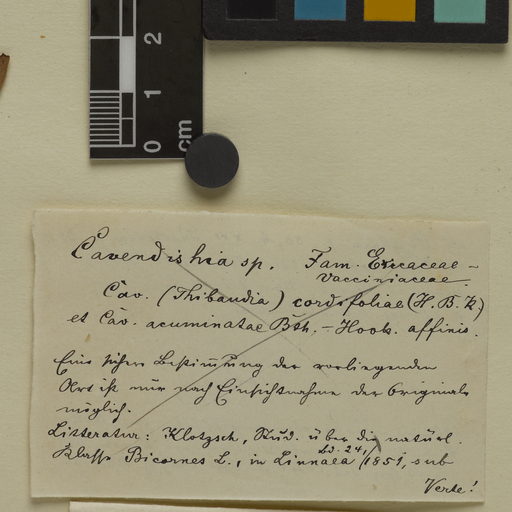 2
1
0
cm
Cavendishia sp. Fam. Ericaceae –
Vacciniaceae.
Cav. (Thibaudia) cordifoliae (H. B. K.)
et Cav. acuminatae Bth. – Hook. affinis.
Eine sichere Bestimmung der vorliegenden
Art ist nur nach Einsichtnahme der Originale
möglich.
Litteratur: Klotzsch, Stud. über die natürl.
Klasse Bicornes L., in Linnaea Bd. 24, (1851, sub
Verte!